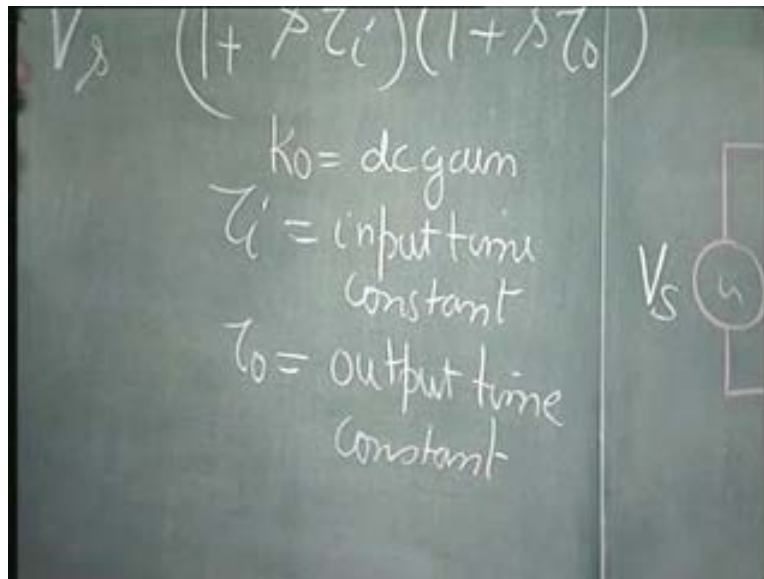 Vs (1 + sτi)(1 + sτo)
Ko = dc gain
τi = input time
constant
τo = output time
constant
Vs